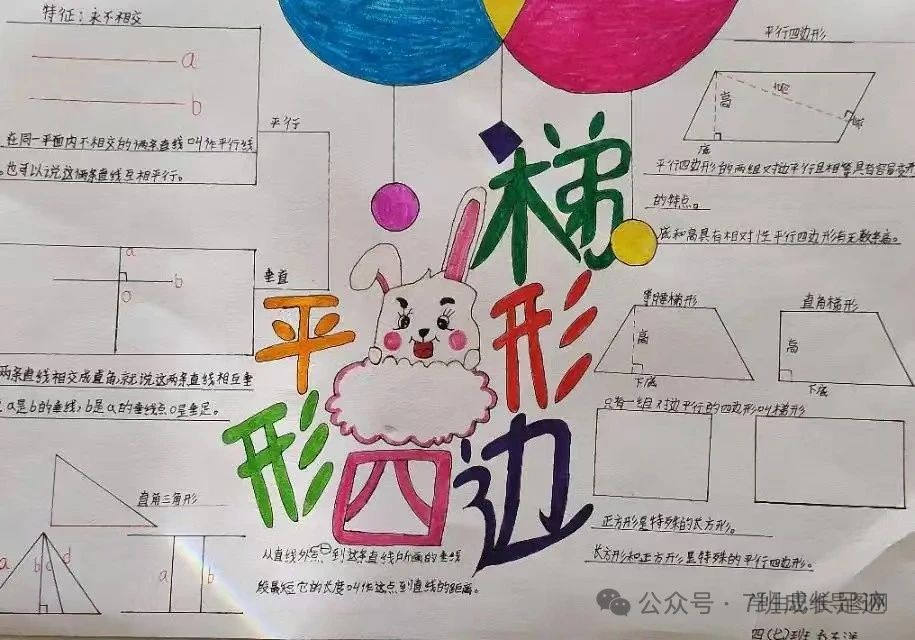 特征：永不相交
a
b
在同一平面内不相交的两条直线叫作平行线
也可以说这两条直线互相平行。
平行
a
b
o
垂直
两条直线相交成直角,就说这两条直线相互垂
a是b的垂线,b是a的垂线点o是垂足。
直角三角形
a
b
c
d
a
b
梯形
平形四边形
从直线外点一到这条直线所画的垂线
段最短它的长度叫作这点到直线的距离。
平行四边形
高
高
底
底
平行四边形的两组对边平行且相等具有容易变形
的特点。
底和高具有相对性平行四边形有无数条高。
等腰梯形
高
下底
直角梯形
高
下底
只有一组对边平行的四边形叫梯形
正方形是特殊的长方形。
长方形和正方形是特殊的平行四边形。
公众号·
四(七)班